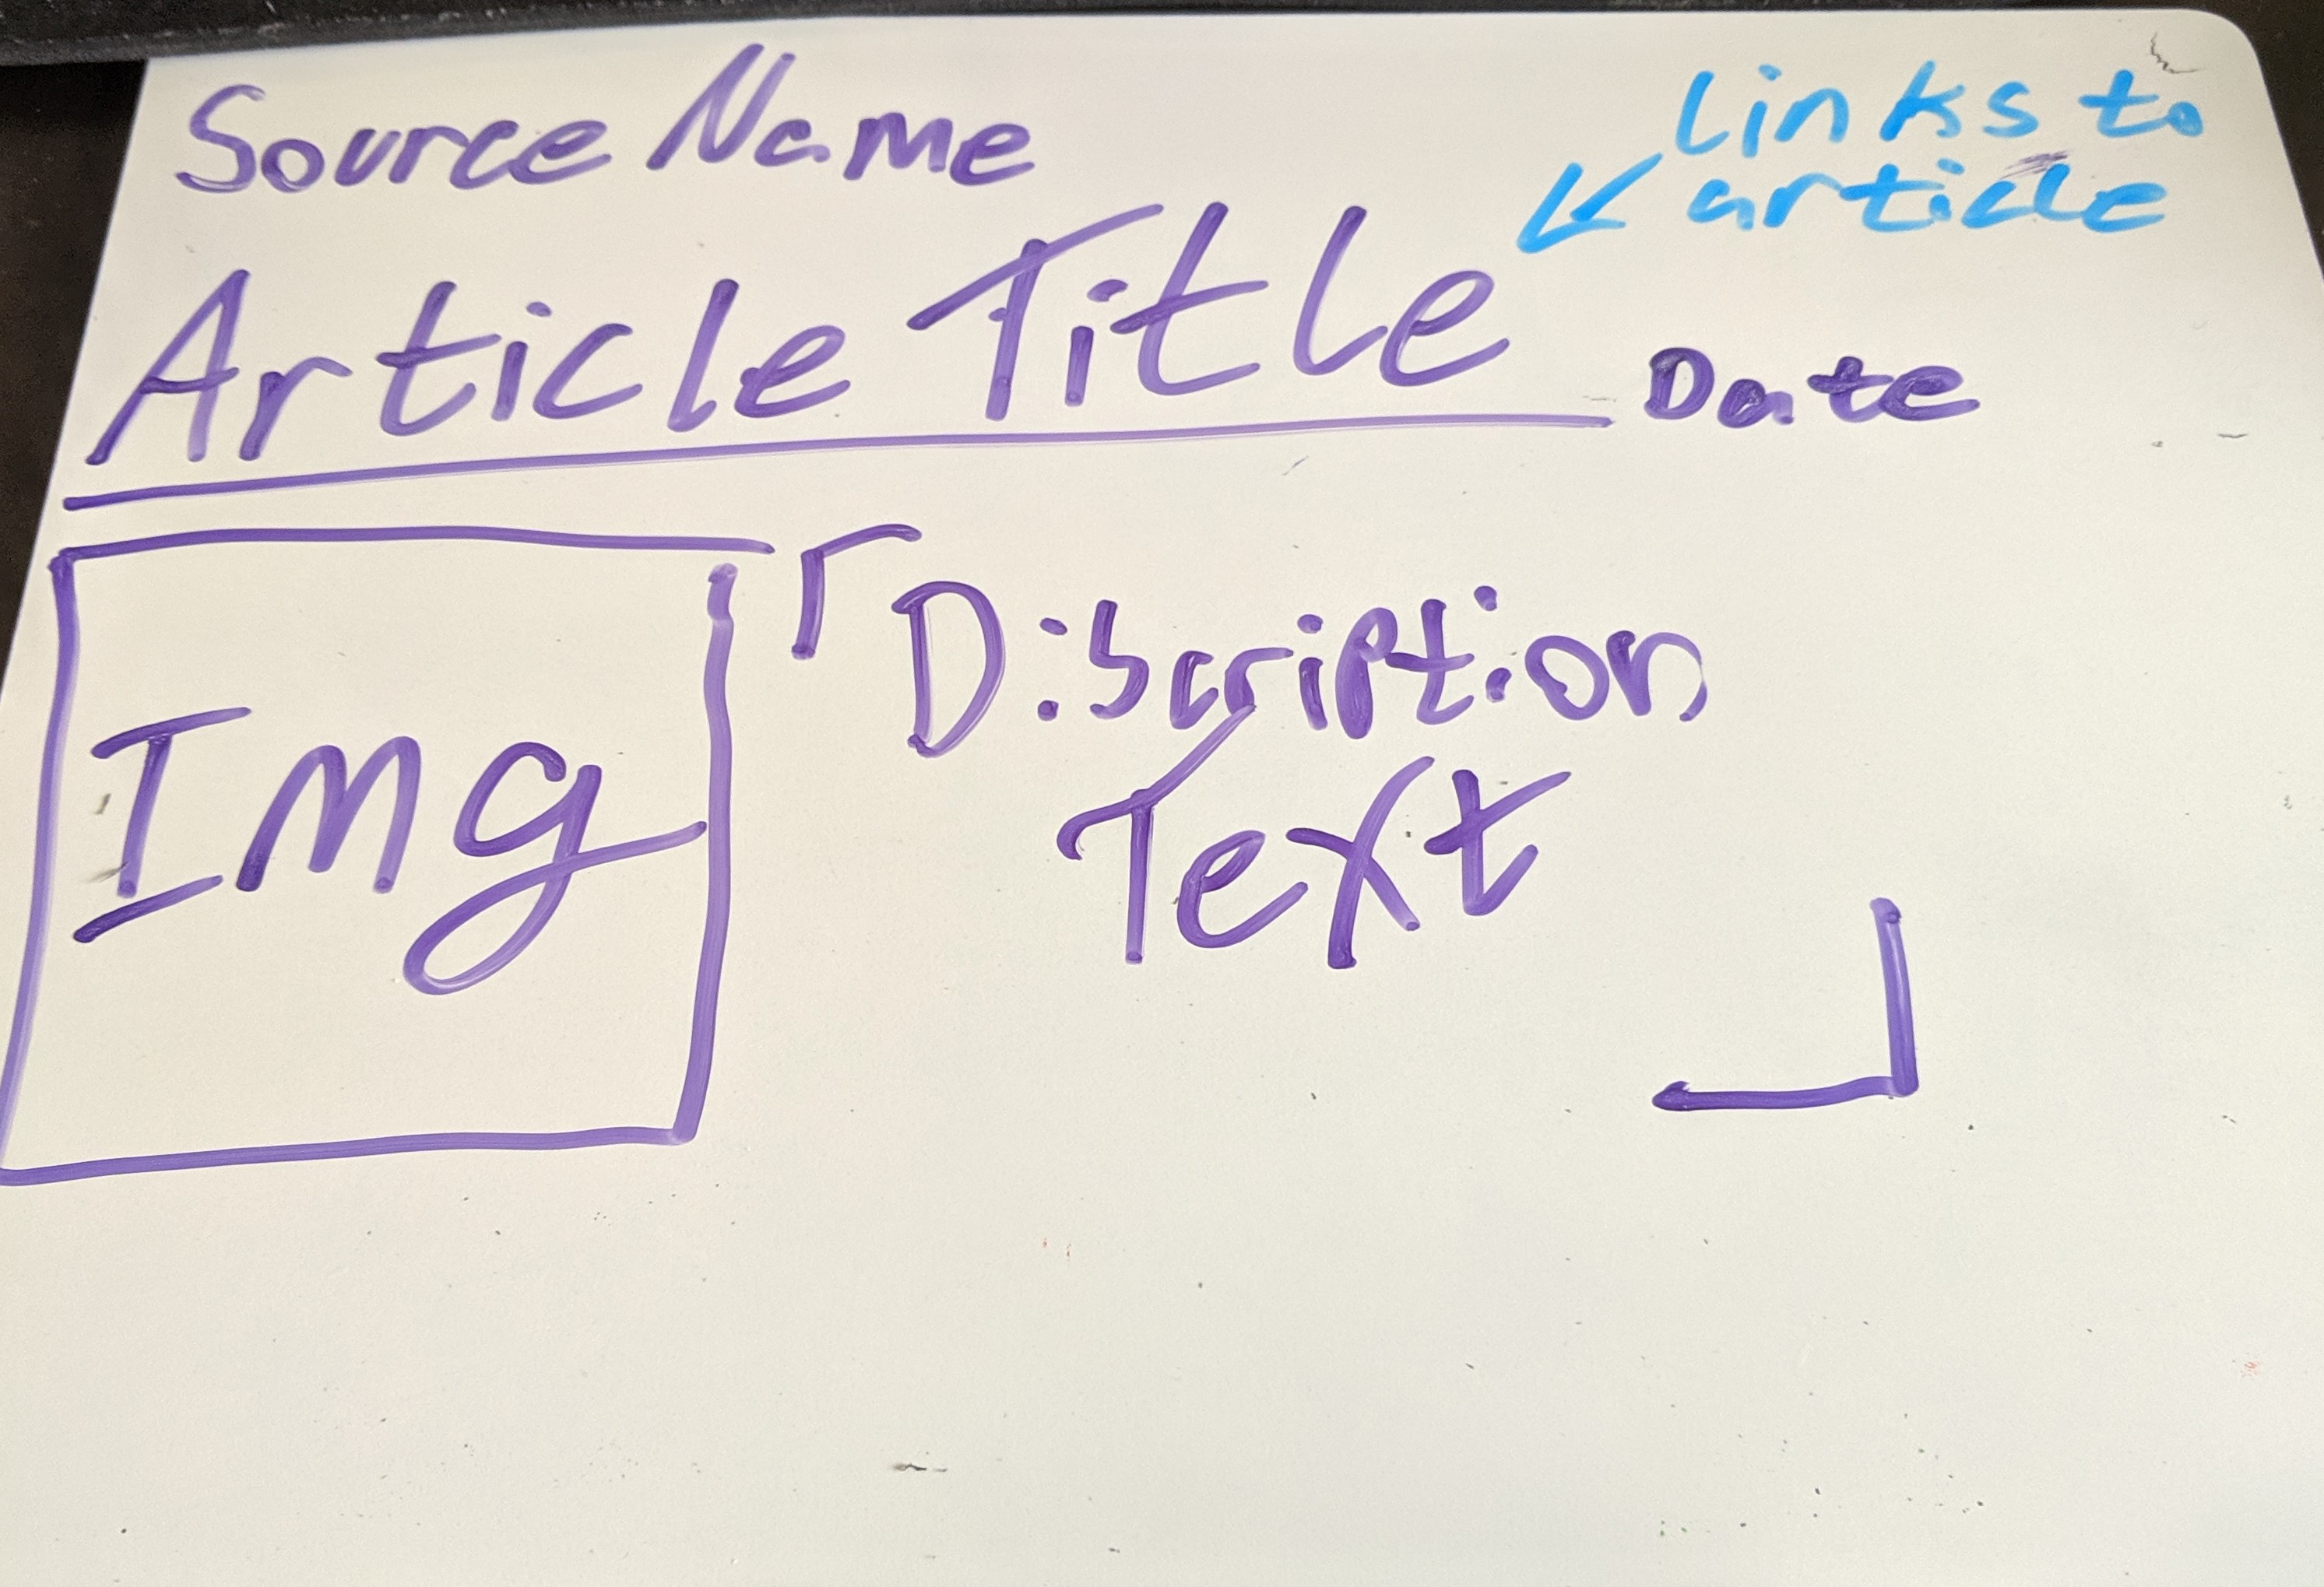 Source Name
Links to
article
Article Title
Date
Img
Discription
Text